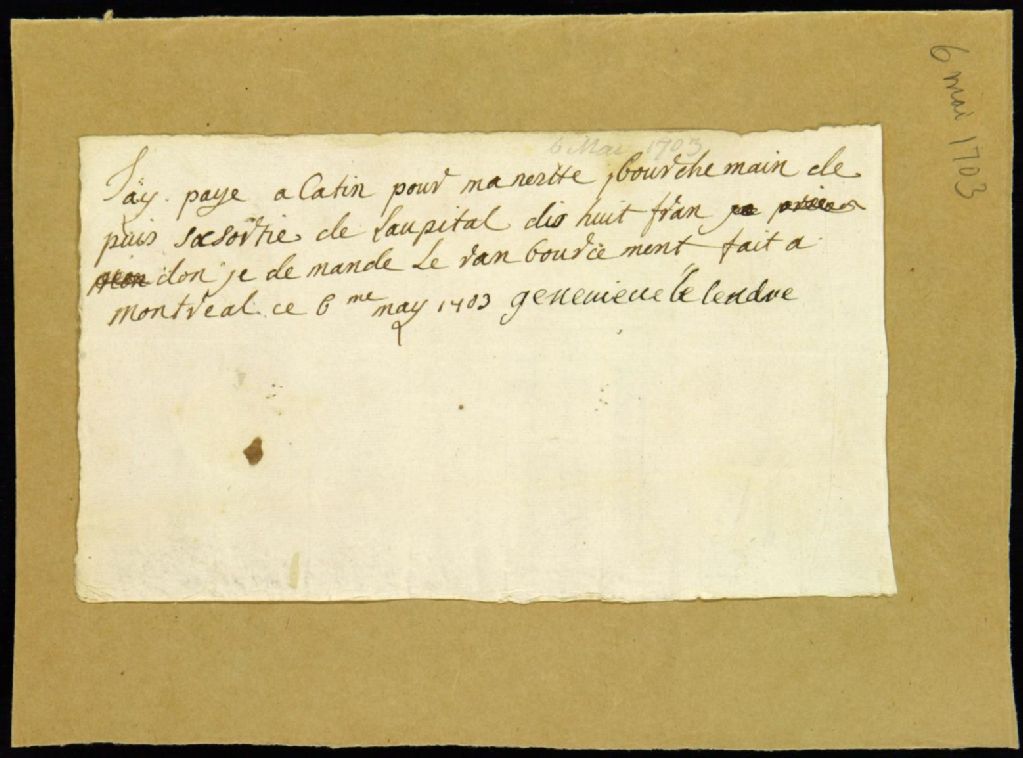 6 mai 1703
6 Mai 1703
Jay paye a Catin pour ma nesitte bourchemain de
puis sasortie de laupital dis huit fran
don je de mande Le ran boursse ment fait a
montreal ce 6me may 1703 genevieve le lendre